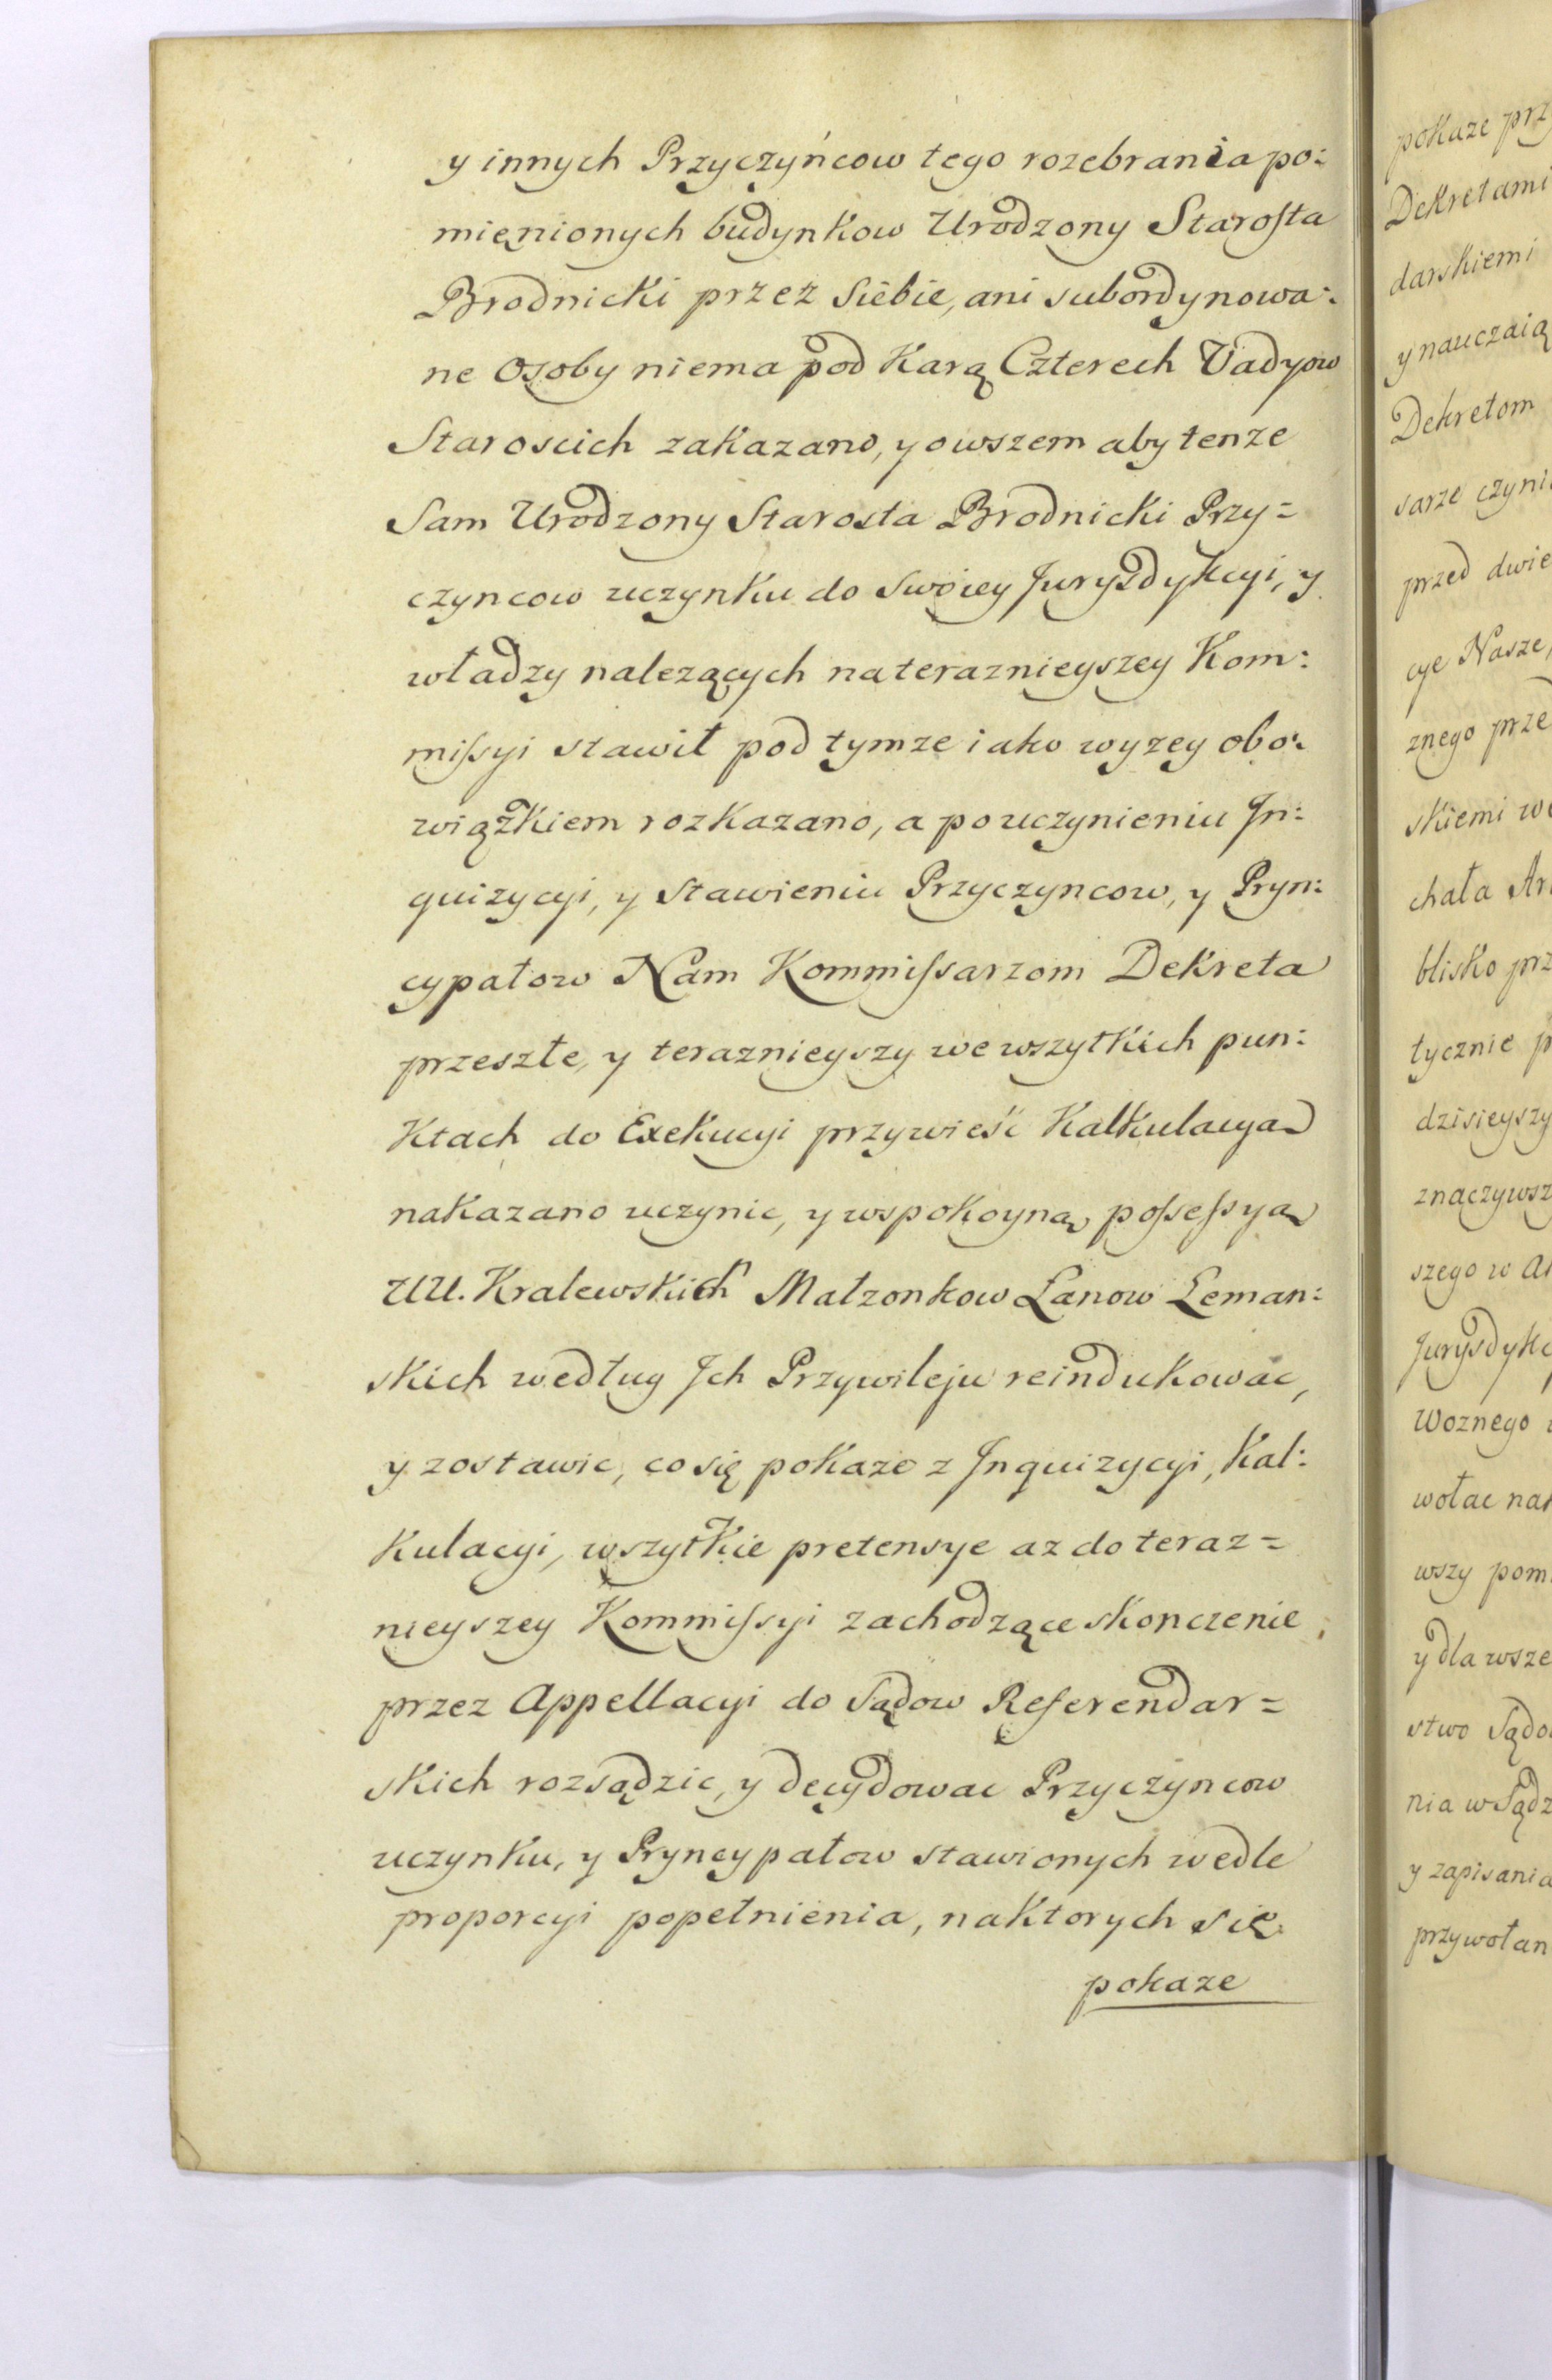 y innych Przyczyńcow tego rozebrania po:
mięnionych budynkow Urodzony Starosta
Brodnicki przez Siebie, ani subordynowa:
ne Osoby niema pod Karą Czterech Vadyow
Staroscich zakazano, y owszem aby tenze
Sam Urodzony Starosta Brodnicki Przy=
czyncow uczynku do Swoiey Juryzdykcyi, y
władzy nalezących na teraznieyszey Kom:
missyi stawił pod tymze iako wyzey obo:
wiązkiem rozkazano, a po uczynieniu In:
quizycyi, y Stawieniu Przyczyncow, y Pryn:
cypałow Nam Kommissarzom Dekreta
przeszłe, y teraznieyszy we wszytkich pun:
ktach do Exekucyi przywieść Kalkulacyą
nakazano uczynic, y w spokoyną possessyą
UU. Kralewskich Małzonkow Łanow Leman:
skich według Ich Przywileju reindukowac,
y zostawic, co się pokaze z Inquizycyi, Kal:
kulacyi, wszytkie pretensye az do teraz=
nieyszey Kommissyi zachodzące skonczenie
przez Appellacyi do Sądow Referendar=
skich rozsądzic, y decydowac Przyczyncow
uczynku, y Pryncypałow stawionych wedle
proporcyi popełnienia, na ktorych się
pokaze
pokaze prz
Dekretami
darskiemi
y nauczaią
Dekretom
sarze czyni
przed dwie
cye Nasze,
znego prze
skiemi w
chała Ar
blisko prz
tycznie p
dzisieyszy
znaczywsz
szego w A
Jurysdykc
Woznego
wołac nak
wszy pom
y dla wsze
stwo Sądo
nia w Sądz
y zapisania
przywołan